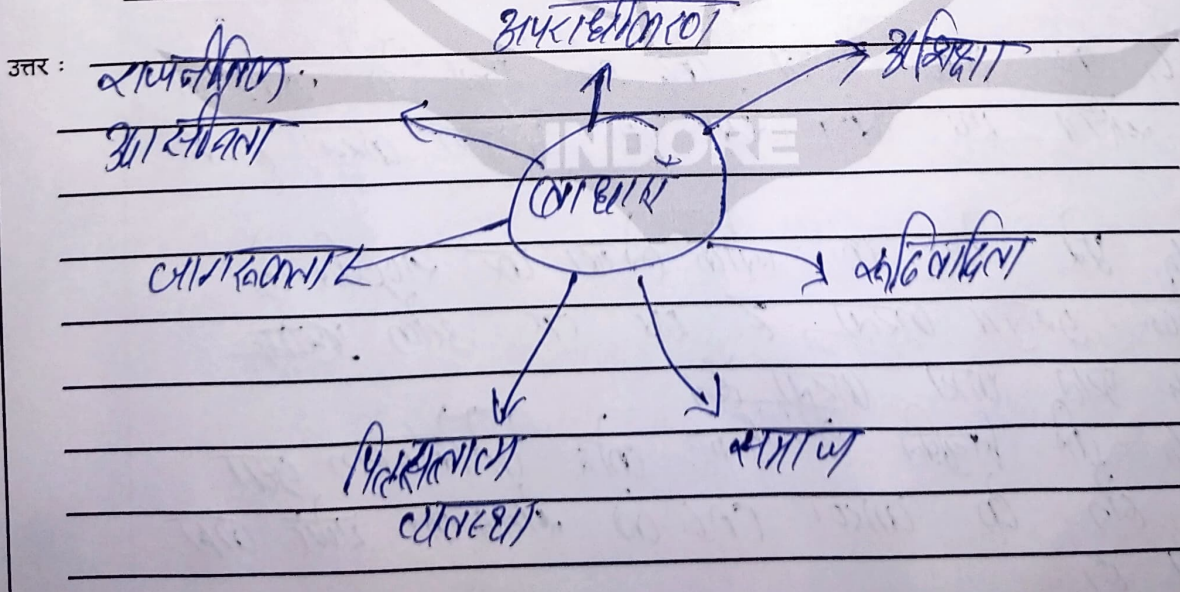 उत्तर :
अपराधीकरण
अशिक्षा
राजनीतिक
INDORE
बाधाएँ
जागरूकता
रूढिवादिता
पितृसत्तात्म
समाज
व्यवस्था